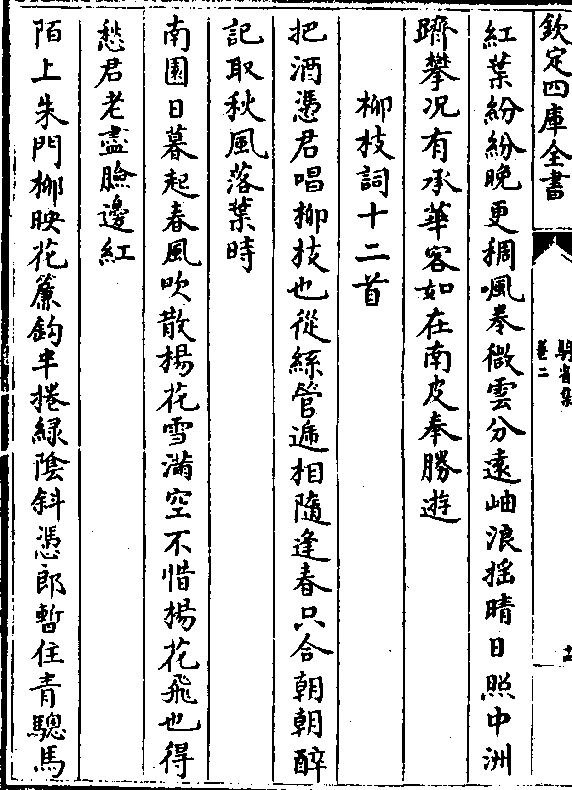 欽定四庫全書
騎省集
卷二
十二
紅葉紛紛晚更稠颯拳微雲分遠岫浪揺晴日照中洲
躋攀况有承華客如在南皮奉勝遊
柳枝詞十二首
把酒憑君唱柳枝也從絲管遞相隨逢春只合朝朝醉
記取秋風落葉時
南園日暮起春風吹散楊花雪滿空不惜楊花飛也得
愁君老盡臉邊紅
陌上朱門柳映花簾鈎半捲緑陰斜憑郎暫住青驄馬